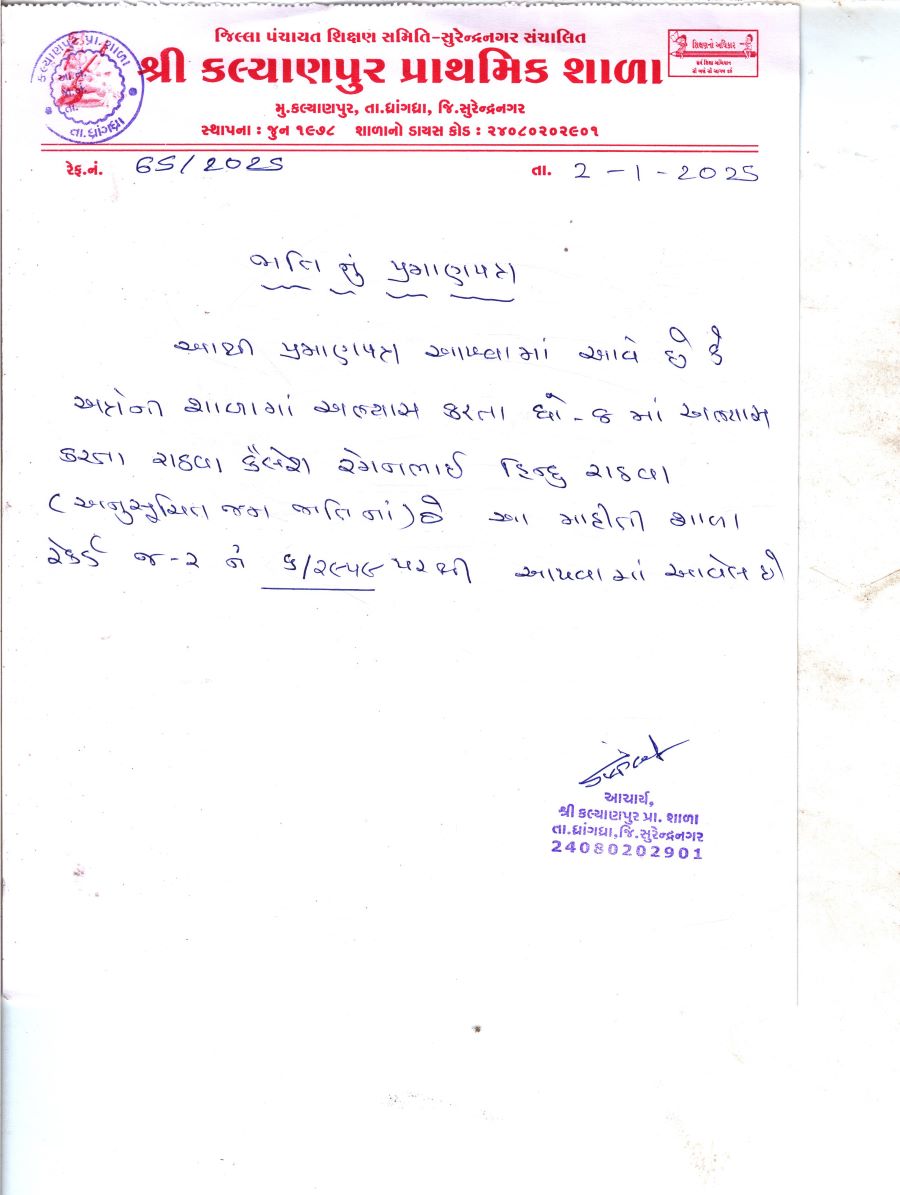 જિલ્લા પંચાયત શિક્ષણ સમિતિ-સુરેન્દ્રનગર સંચાલિત
શ્રી કલ્યાણપુર પ્રાથમિક શાળા
મુ.કલ્યાણપુર, તા.ધ્રાંગધ્રા, જિ.સુરેન્દ્રનગર
સ્થાપના : જુન ૧૯૭૮ શાળાનો ડાયસ કોડ : ૨૪૦૮૦૨૦૨૯૦૧
કલ્યાણપુર પ્રા. શાળા
તા. ધ્રાંગધ્રા
શિક્ષણનો અધિકાર
સર્વ શિક્ષા અભિયાન
રેફ.નં. 65/2025 તા. 2-1-2025
જાતિ નું પ્રમાણપત્ર
આથી પ્રમાણપત્ર આપવામાં આવે છે કે
અત્રેની શાળામાં અભ્યાસ કરતા ધો-૮ માં અભ્યાસ
કરતા રાઠવા કૈલેશ રંગનભાઈ હિન્દુ રાઠવા
(અનુસૂચિત જન જાતિ નાં) છે આ માહીતી શાળા
રેકર્ડ જ-૨ નં ક/૨૯૫૯ પરથી આપવામાં આવેલ છે
આચાર્ય,
શ્રી કલ્યાણપુર પ્રા. શાળા
તા.ધ્રાંગધ્રા,જિ.સુરેન્દ્રનગર
24080202901